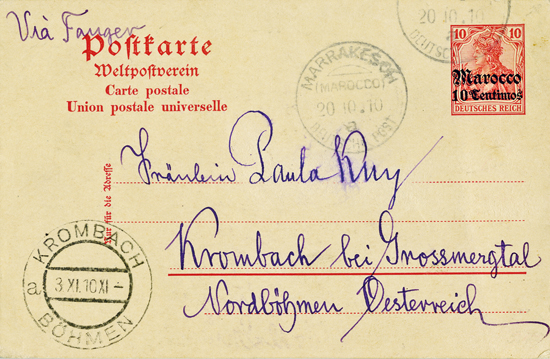 Via Tanger
Postkarte
Weltpostverein
Carte postale
Union postale universelle
20 10.10
10 10
Marocco
10 Centimos
DEUTSCHES REICH
MARRAKESCH
(MAROCCO)
20 10.10
DEUTSCHE POST
Nur für die Adresse
Fräulein Paula
Krombach bei Grossmergtal
Nordböhmen Oesterreich
KROMBACH
a 3 XI.10 XI -
BÖHMEN